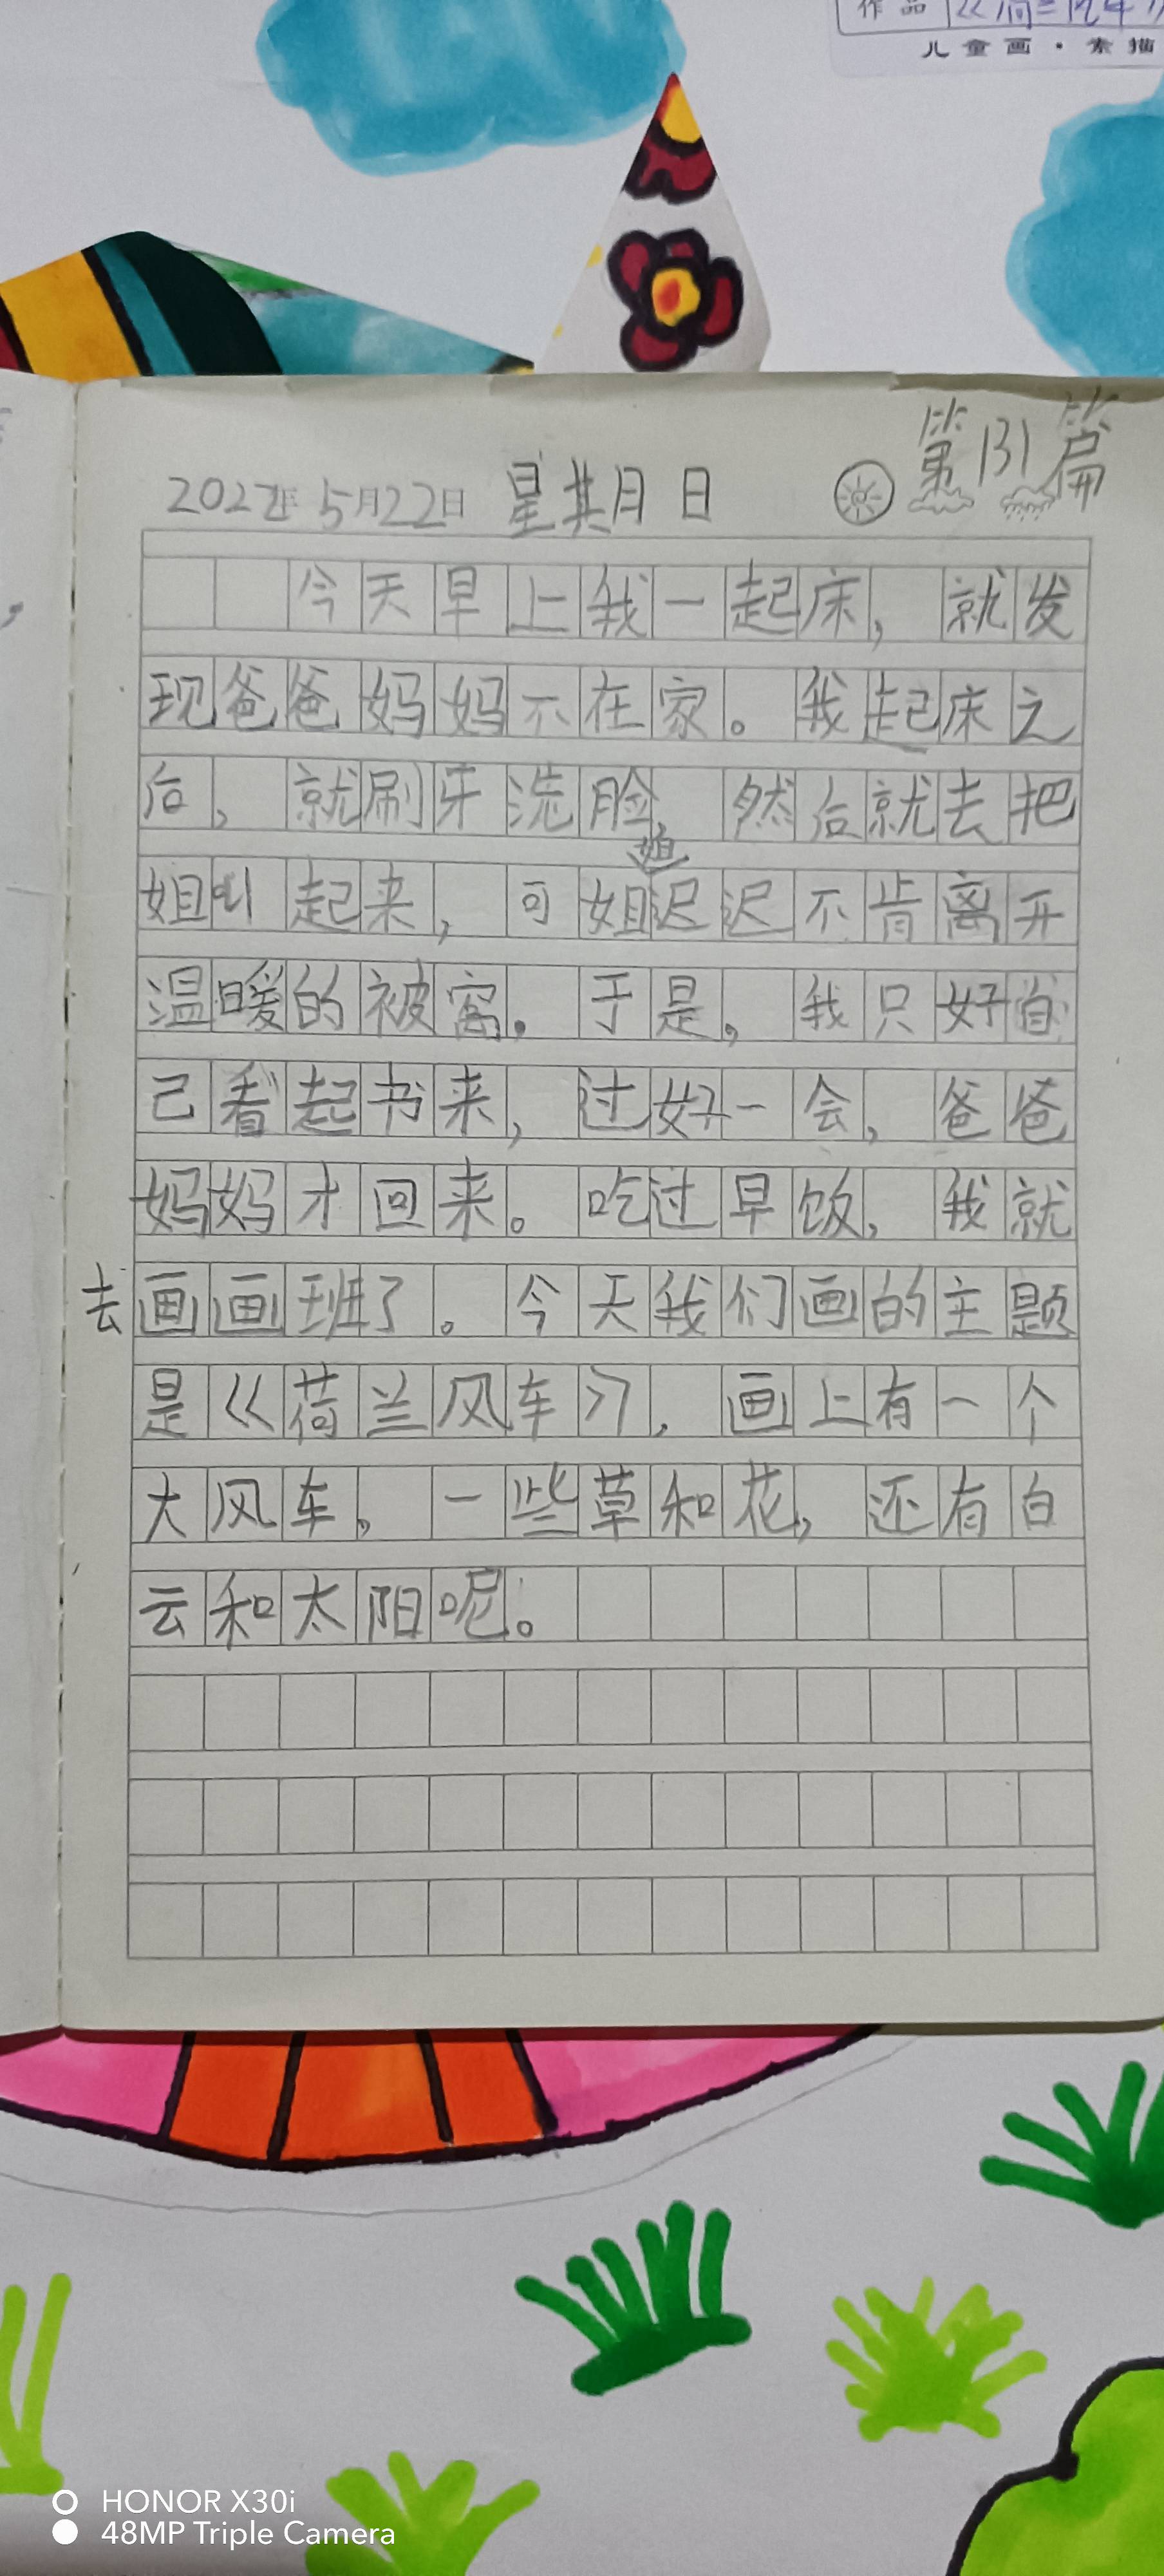 作品
儿童画·素描
第131篇
2022年5月22日 星其月日
今天早上我一起床，就发
现爸爸妈妈不在家。我起床之
后，就刷牙洗脸，然后就去把
姐叫起来，可姐姐迟迟不肯离开
温暖的被窝。于是，我只好自
己看起书来，过好一会，爸爸
妈妈才回来。吃过早饭，我就
去画画班了。今天我们画的主题
是《荷兰风车》，画上有一个
大风车。一些草和花，还有白
云和太阳呢。
HONOR X30i
48MP Triple Camera